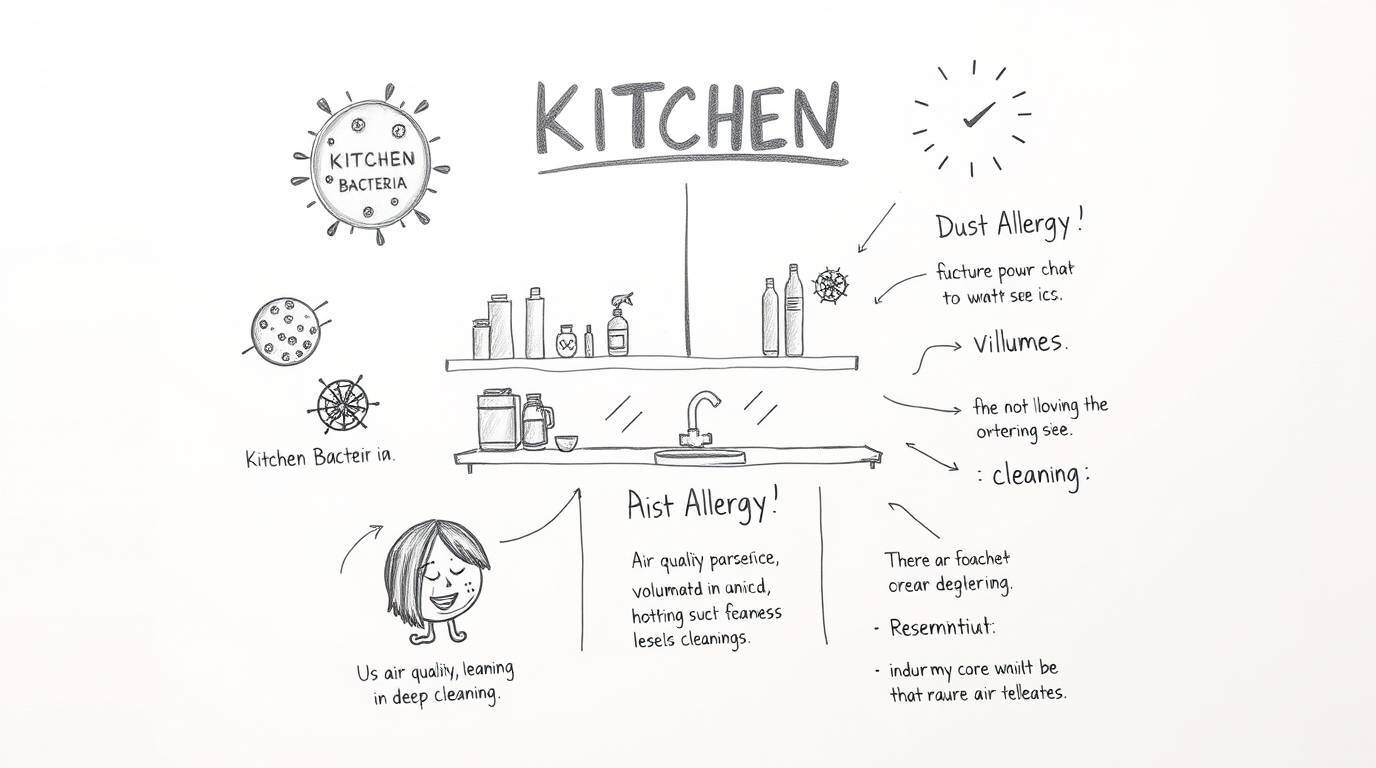 KITCHEN
KITCHEN
BACTERIA
Dust Allergy!
fucture powr chat
to watt see ics.
Villumes.
fhe not lloving the
ortering see.
: cleaning:
Kitchen Bacteir in.
Aist Allergy!
Air qualiy parsefice,
volumatd in anicd,
hotting suct feaness
lesels cleanings.
There ar foachet
orear deglering.
- Resemntiut:
- indur my core wnilt be
that raure air telleates.
Us air qualiy, leaning
in deep cleaning.